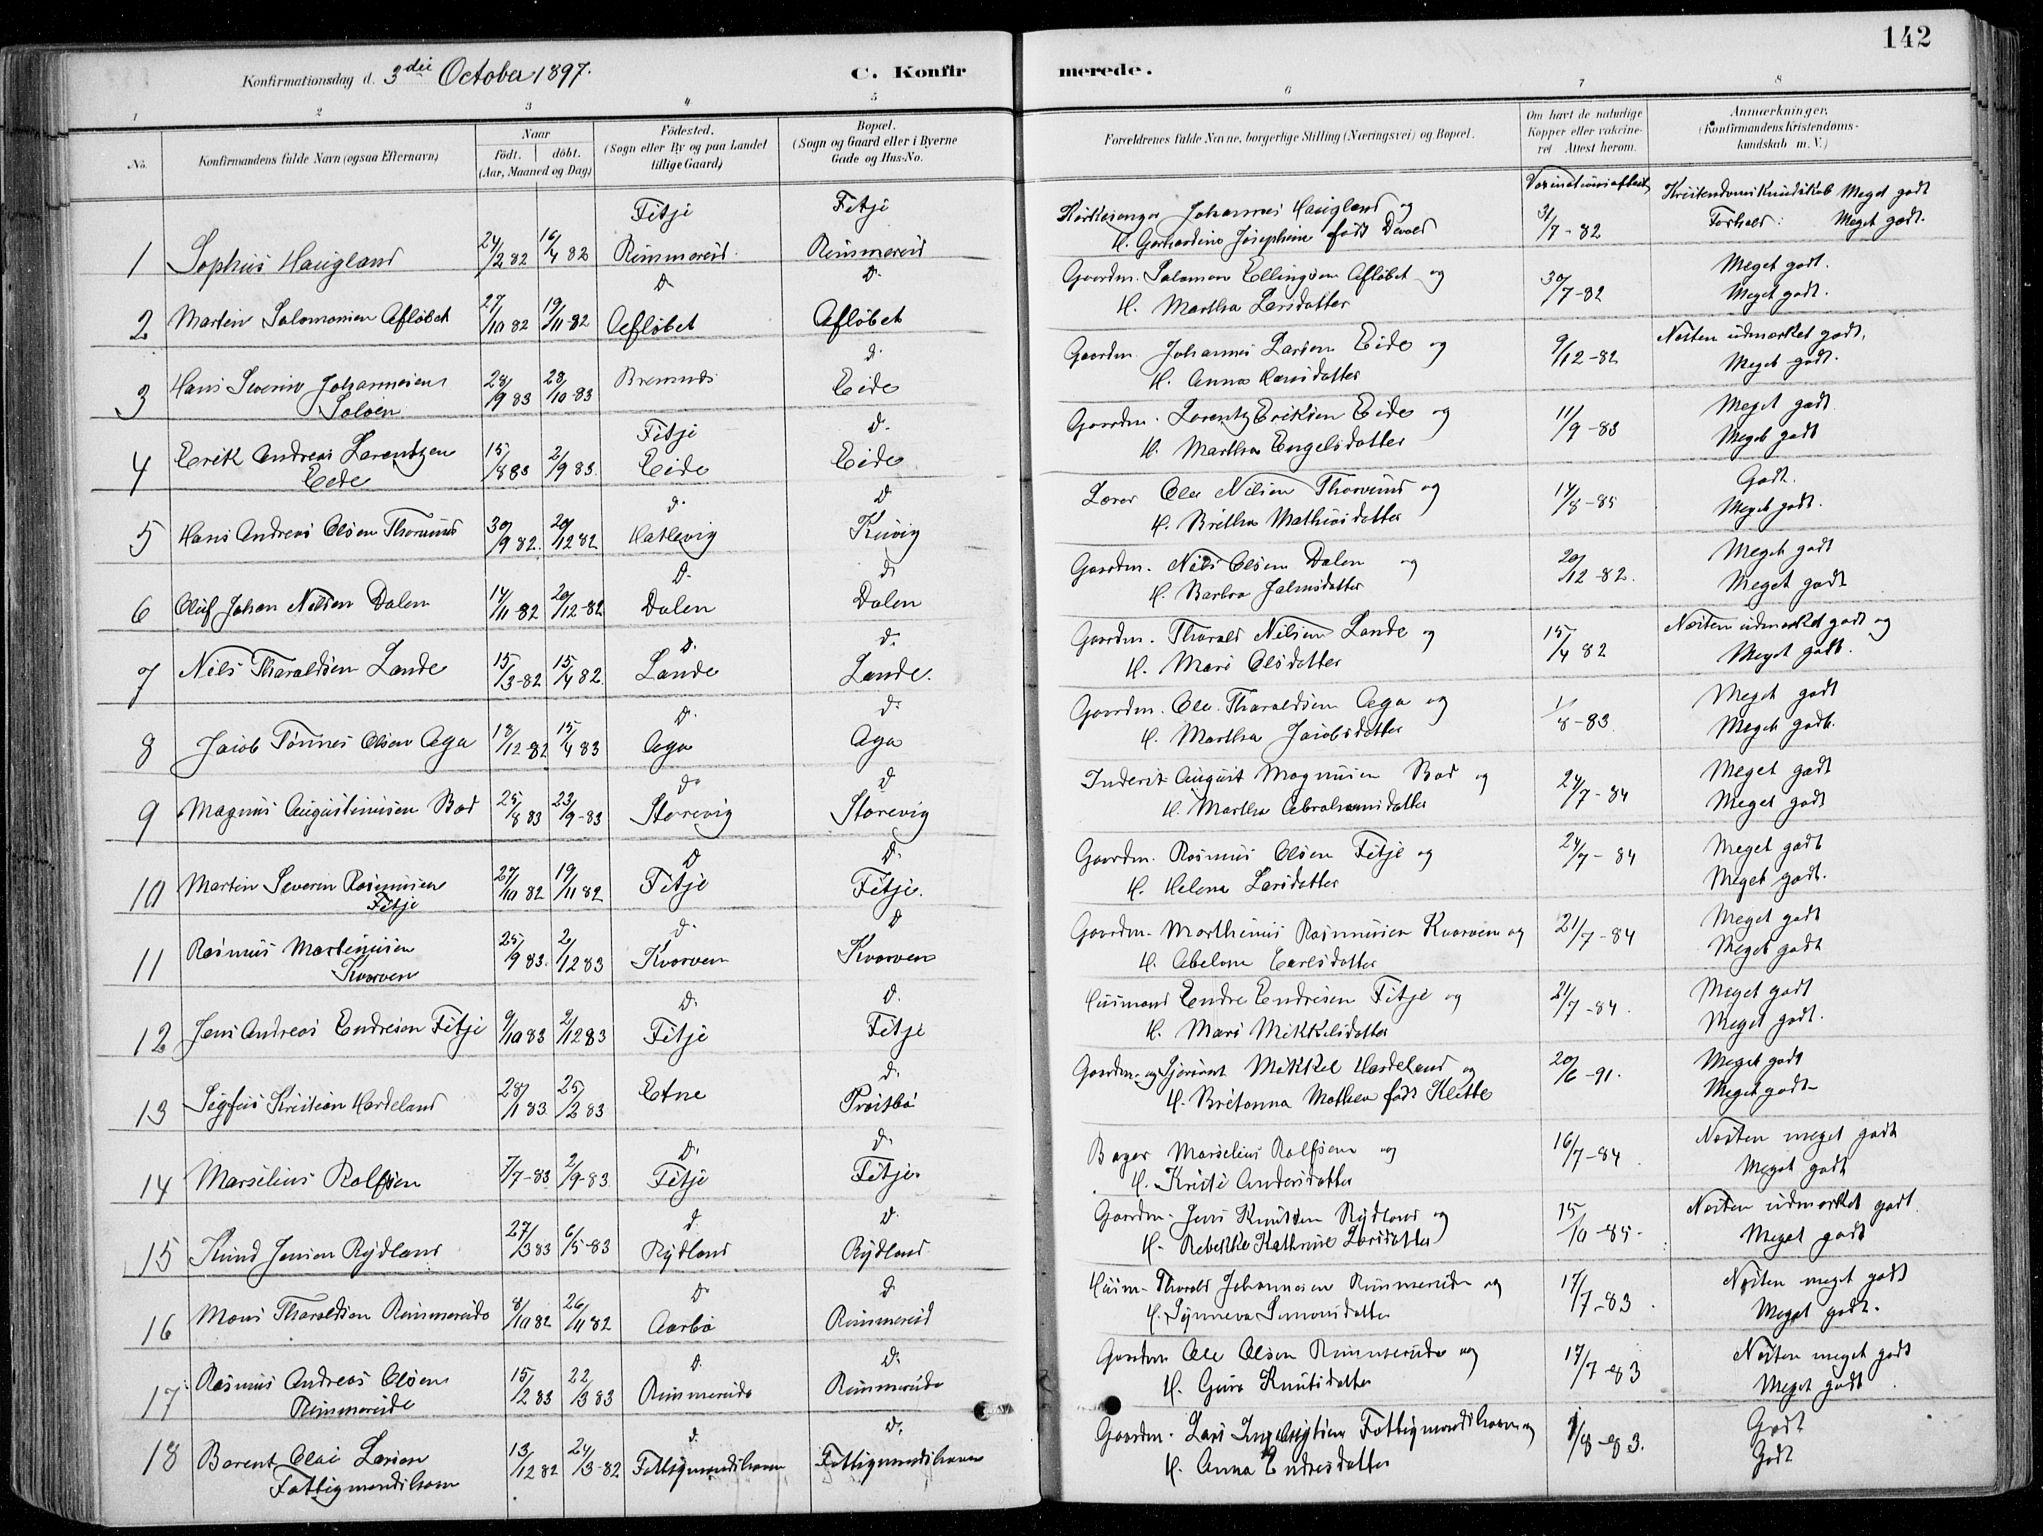 142
Konfirmationsdag d. 3die October 1897.
C. Konfirmerede.
1 2 3 4 5 6 7 8
No.
Konfirmandens fulde Navn (ogsaa Efternavn)
Naar
födt. döbt.
(Aar, Maaned og Dag)
Födested.
(Sogn eller By og paa Landet
tillige Gaard)
Bopæl.
(Sogn og Gaard eller i Byerne
Gade og Hus-No.
Forældrenes fulde Navne, borgerlige Stilling (Næringsvei) og Bopæl.
Om havt de naturlige
Kopper eller vakcine-
ret Attest herom.
Anmærkninger,
(Konfirmandens Kristendoms-
kundskab m. V.)
Fitje Fitje Kirkesanger Johannes Haugland og Vaxinationsattest Kristendomskundskab Meget godt
1 Sophus Haugland 24/2 82 16/4 82 Rimmereid Rimmereid H. Gerhardine Josephine født Devold 31/7-82 Forhold: Meget godt.
D. D. Gaardm. Salomon Ellingsen Afløbet og Meget godt.
2 Martin Salomonsen Afløbet 27/10 82 19/11-82 Afløbet Afløbet H. Martha Larsdatter 30/7-82 Meget godt.
d. Gaardm. Johannes Larsen Eide og Næsten udmærket godt,
3 Hans Severin Johannesen 28/9 83 28/10-83 Bremnes Eide H. Anna Hansdatter 9/12-82 Meget godt.
Soløen
Fitje d. Gaardm. Lorentz Eriksen Eide og Meget godt
4 Erik Andreas Lorentzen 15/8 83 2/9 83. Eide Eide H. Martha Engelsdatter 11/9-83 Meget godt
Eide
d. D Lærer Ole Nilsen Thorsnes og Godt.
5 Hans Andreas Olsen Thorsnes 30/9 82. 20/12 82 Hatlevig H. Britha Mathiasdatter 14/8-85 Meget godt.
D. d. Gaardm. Nils Olsen Dalen og Meget godt
6 Oluf Johan Nilsen Dalen 14/11-82 20/12-82 Dalen Dalen H. Barbra 20/12-82. Meget godt
D. d. Gaardm. Thorald Nilsen Lande og Næsten udmærket godt og
7 Nils Tharaldsen Lande 15/3-82 15/4 82. Lande Lande. H. Mari Olsdatter 15/4 82 Meget godt.
D. d. Gaardm. Ole Tharaldsen Aga og Meget godt
8 Jacob Tønnes Olsen Aga 18/12-82 15/4 83 Aga Aga H. Martha Jacobsdatter 1/8-83 Meget godt.
do D Inderst August Magnusen Bod og Meget godt
9 Magnus Augustinusen Bod 25/8 83 23/9-83 Storevig Storevig H. Martha Abrahamsdatter 24/7-84 Meget godt
D D. Gaardm. Rasmus Olsen Fitje og Meget godt
10 Martin Severin Rasmusen 27/10 82 19/11 82 Fitje Fitje. H. Helena Larsdatter 24/7-84 Meget godt.
Fitje
d. D Gaardm. Marthinus Rasmusen Kvarven og Meget godt
11 Rasmus Martinusen 25/9 83. 2/12 83 Kvarven Kvarven H. Abelone Earlsdatter 21/7-84 Meget godt
Kvarven
D. D. Husmand Endre Endresen Fitje og Meget godt
12 Jens Andreas Endresen Fitje 9/10 83 2/12 83 Fitje Fitje H. Mari Mikkelsdatter 21/7-84. Meget godt.
d. Gaardm. og Mikkel Hardeland og Meget godt
13 Sigfus Kristian Hardeland 28/1 83 25/2 83 Etne H. Britanna Mathea født Klette 20/6-91. Meget godt
D. d. Bager Marselius Rolfsen og Næsten meget godt
14 Marselius Rolfsen 7/7-83 2/9-83 Fitje Fitje H. Kristi Andersdatter 16/7-84 Meget godt
d. D. Gaardm. Jens Knutsen Rydland og Næsten udmærket godt
15 Knud Jensen Rydland 27/3 83 6/5-83 Rydland Rydland H. Rebekke Kathrine Larsdatter 15/10-85. Meget godt
D. d. Husm. Thorald Johannesen Rimmereide og Næsten meget godt
16 Mons Tharaldsen Rimmereide 8/10 82 26/11 82 Aarbø Rimmereid H. Synneva Simonsdatter 17/7-83. Meget godt.
D. D. Gaardm Ole Olsen Rimmereide og Næsten meget godt
17 Rasmus Andreas Olsen 15/2 83 22/3 83 Rimmereide Rimmereide H. Guro Knutsdatter 17/7-83 Meget godt
Rimmereide
d. D. Gaardm. Lars Fattigmandshavn og Godt
18 Berent Olai Larsen 13/12 82 24/3-82 Fattigmandshavn Fattigmandshavn H. Anna Endresdatter 1/8-83. Godt
Fattigmandshavn